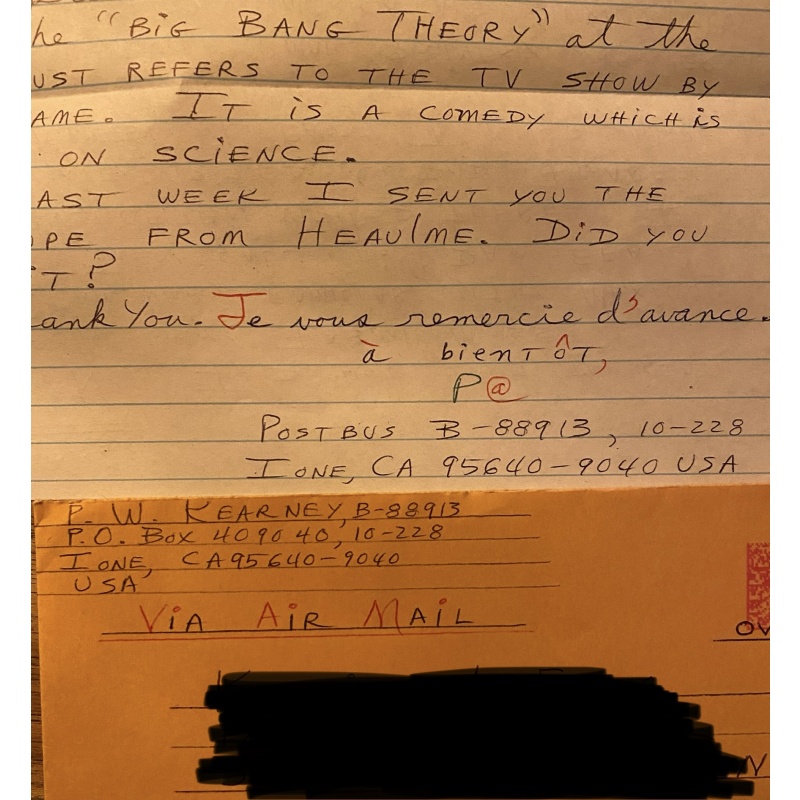 he "BiG BANG THEORY" at the
UST REFERS TO THE TV SHOW BY
AME. IT iS A COMEDY WHiCH is
ON SCiENCE.
AST WEEK I SENT YOU THE
PE FROM HEAUlME. DiD YOU
T?
ank You. Je vous remercie d'avance.
à bienTÔT,
P@
POSTBUS B-88913, 10-228
IONE, CA 95640-9040 USA
P. W. KEARNEY, B-88913
P.O. Box 4090 40, 10-228
IONE, CA 95640-9040
USA
ViA AiR MAiL
OV
N